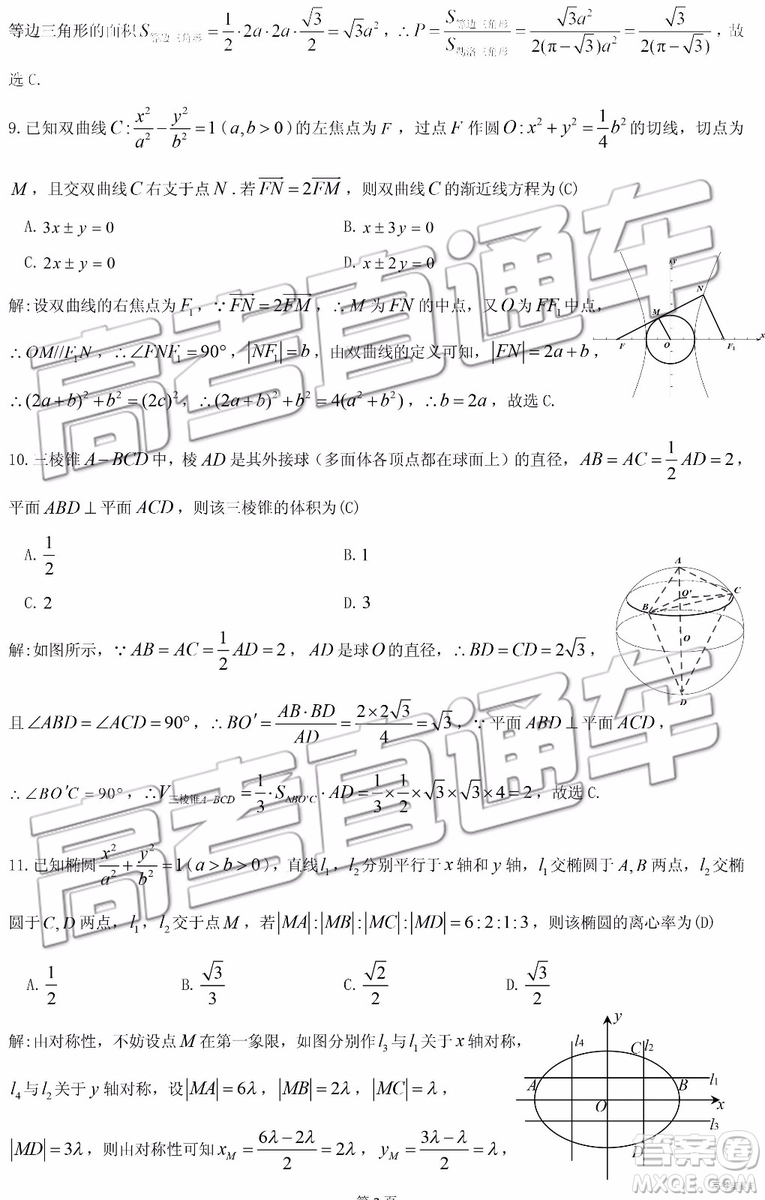 等边三角形的面积 S_{等边三角形} = \frac{1}{2}·2a·2a·\frac{\sqrt{3}}{2} = \sqrt{3}a^2，∴P = \frac{S_{等边三角形}}{S_{勒洛三角形}} = \frac{\sqrt{3}a^2}{2(π-\sqrt{3})a^2} = \frac{\sqrt{3}}{2(π-\sqrt{3})}，故
选C.
9.已知双曲线C:\frac{x^2}{a^2}-\frac{y^2}{b^2}=1(a,b>0)的左焦点为F，过点F作圆O:x^2+y^2=\frac{1}{4}b^2的切线，切点为
M，且交双曲线C右支于点N.若\overrightarrow{FN}=2\overrightarrow{FM}，则双曲线C的渐近线方程为(C)
A.3x±y=0 B.x±3y=0
C.2x±y=0 D.x±2y=0
解:设双曲线的右焦点为F_1，∵\overrightarrow{FN}=2\overrightarrow{FM}，∴M为FN的中点，又O为FF_1中点，
∴OM//F_1N，∴∠FNF_1=90°，|NF_1|=b，由双曲线的定义可知，|FN|=2a+b，
∴(2a+b)^2+b^2=(2c)^2，∴(2a+b)^2+b^2=4(a^2+b^2)，∴b=2a，故选C.
M N
F O F_1 x
10.三棱锥A-BCD中，棱AD是其外接球（多面体各顶点都在球面上）的直径，AB=AC=\frac{1}{2}AD=2，
平面ABD⊥平面ACD，则该三棱锥的体积为(C)
A.\frac{1}{2} B.1
C.2 D.3
A
B O' C
O
D
解:如图所示，∵AB=AC=\frac{1}{2}AD=2，AD是球O的直径，∴BD=CD=2\sqrt{3}，
且∠ABD=∠ACD=90°，∴BO'=\frac{AB·BD}{AD}=\frac{2×2\sqrt{3}}{4}=\sqrt{3}，∵平面ABD⊥平面ACD，
∴∠BO'C=90°，∴V_{三棱锥A-BCD}=\frac{1}{3}·S_{△BO'C}·AD=\frac{1}{3}×\frac{1}{2}×\sqrt{3}×\sqrt{3}×4=2，故选C.
11.已知椭圆\frac{x^2}{a^2}+\frac{y^2}{b^2}=1(a>b>0)，直线l_1，l_2分别平行于x轴和y轴，l_1交椭圆于A,B两点，l_2交椭
圆于C,D两点，l_1，l_2交于点M，若|MA|:|MB|:|MC|:|MD|=6:2:1:3，则该椭圆的离心率为(D)
A.\frac{1}{2} B.\frac{\sqrt{3}}{3} C.\frac{\sqrt{2}}{2} D.\frac{\sqrt{3}}{2}
解:由对称性，不妨设点M在第一象限，如图分别作l_3与l_1关于x轴对称，
l_4与l_2关于y轴对称，设|MA|=6λ，|MB|=2λ，|MC|=λ，
|MD|=3λ，则由对称性可知x_M=\frac{6λ-2λ}{2}=2λ，y_M=\frac{3λ-λ}{2}=λ，
y
l_4 C l_2
A B l_1
O x
l_3
D
高考直通车
高考直通车
答案圈
MXQE.COM